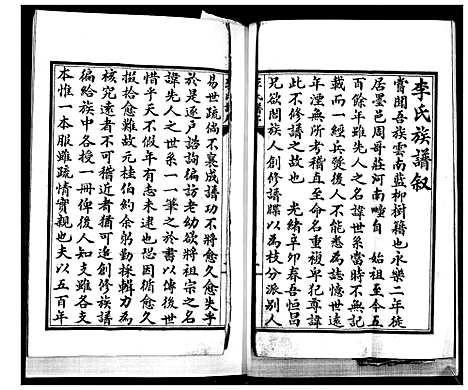 李氏族譜叙
嘗聞吾族雲南藍柳樹籍也永樂二年徙
居墨邑周哥莊河南疃自　始祖至今五
百餘年雖先人之名諱世系當時不忘記
載而一經兵燹後人不能悉為誌憶世遠
年湮無所考稽直至命名重複卑犯尊諱
此不修譜之故也　光緒辛卯春吾恒昌
兄欲闔族人創修譜牒以為枝分派別人
易世疏倘不裒成譜功不將愈久愈失乎
於是逐戶諮詢偏訪老幼欲將先人之名
諱先人之世系一一筆之於書以傳後世
惜乎天不假年有志未逮也愚因循愈久
採輯愈難故元桂伯約余躬勤採輯力為
核究遠者不可稽近者猶可追創修族譜
徧給族中各授一冊俾後人知支雖各支
本惟一本服雖疏情實親也夫以五百年